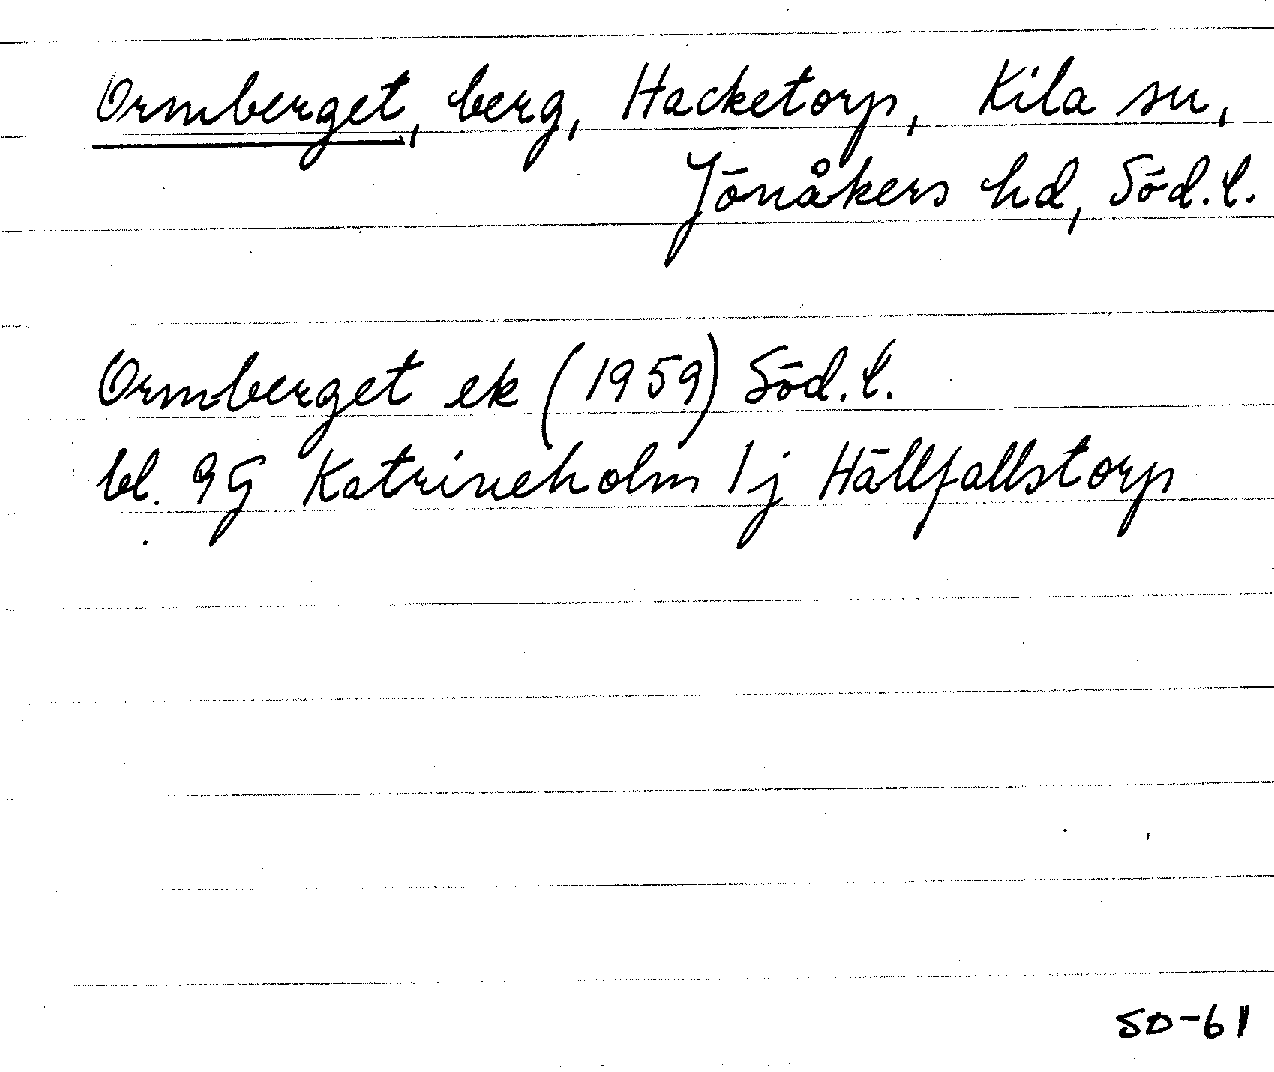 Ormberget, berg, Hacketorp, Kila sn,
Jönåkers hd, Söd.l.
Ormberget ek (1959) Söd.l.
bl. 9G Katrineholm 1j Hällfallstorp
SO-61